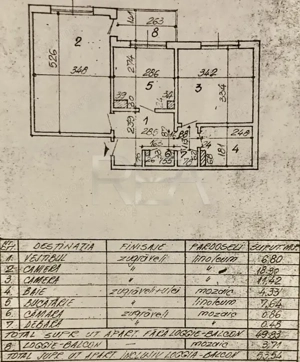 263
8
2
526
348
274
286
5
342
3
334
1
239
286
248
4
181
DESTINAȚIA FINISAJE PARDOSELI
1. VESTIBUL zugrăveli linoleum 6.80
2. CAMERA " " 18.30
3. CAMERA " " 11.42
4. BAIE zugrăveli+ulei mozaic 4.33
5. BUCĂTĂRIE " linoleum 7.84
6. CĂMARA zugrăveli mozaic 0.86
7. DEBARA " " 0.48
TOTAL SUPR. UT. APART. FĂRĂ LOGGIE-BALCON
8 LOGGIE-BALCON — mozaic 3.71
TOTAL SUPR. UT. APART. INCLUSIV LOGGIE-BALCON